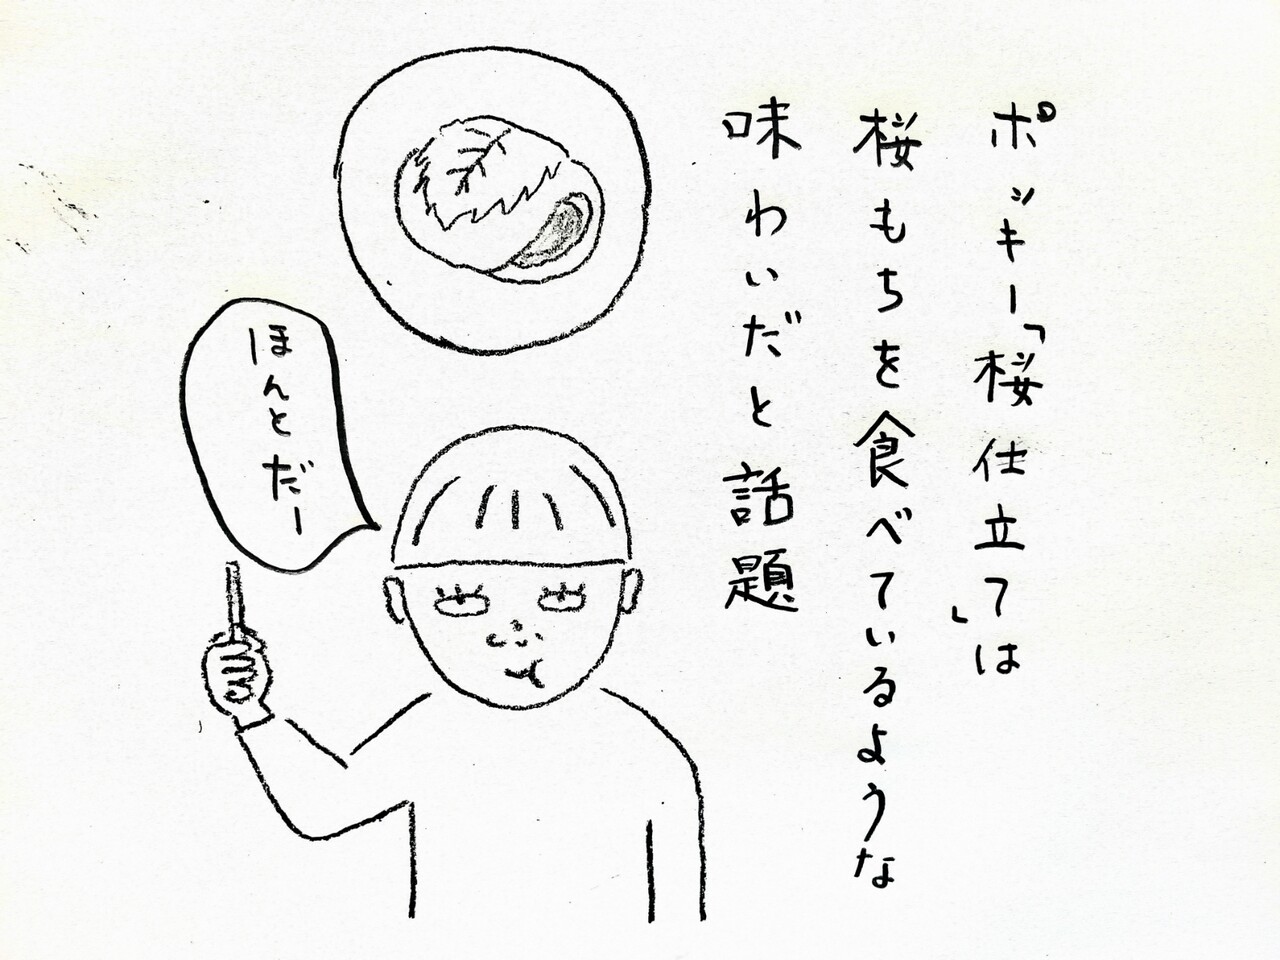 ポッキー「桜仕立て」は
桜もちを食べているような
味わいだと話題
ほんとだー